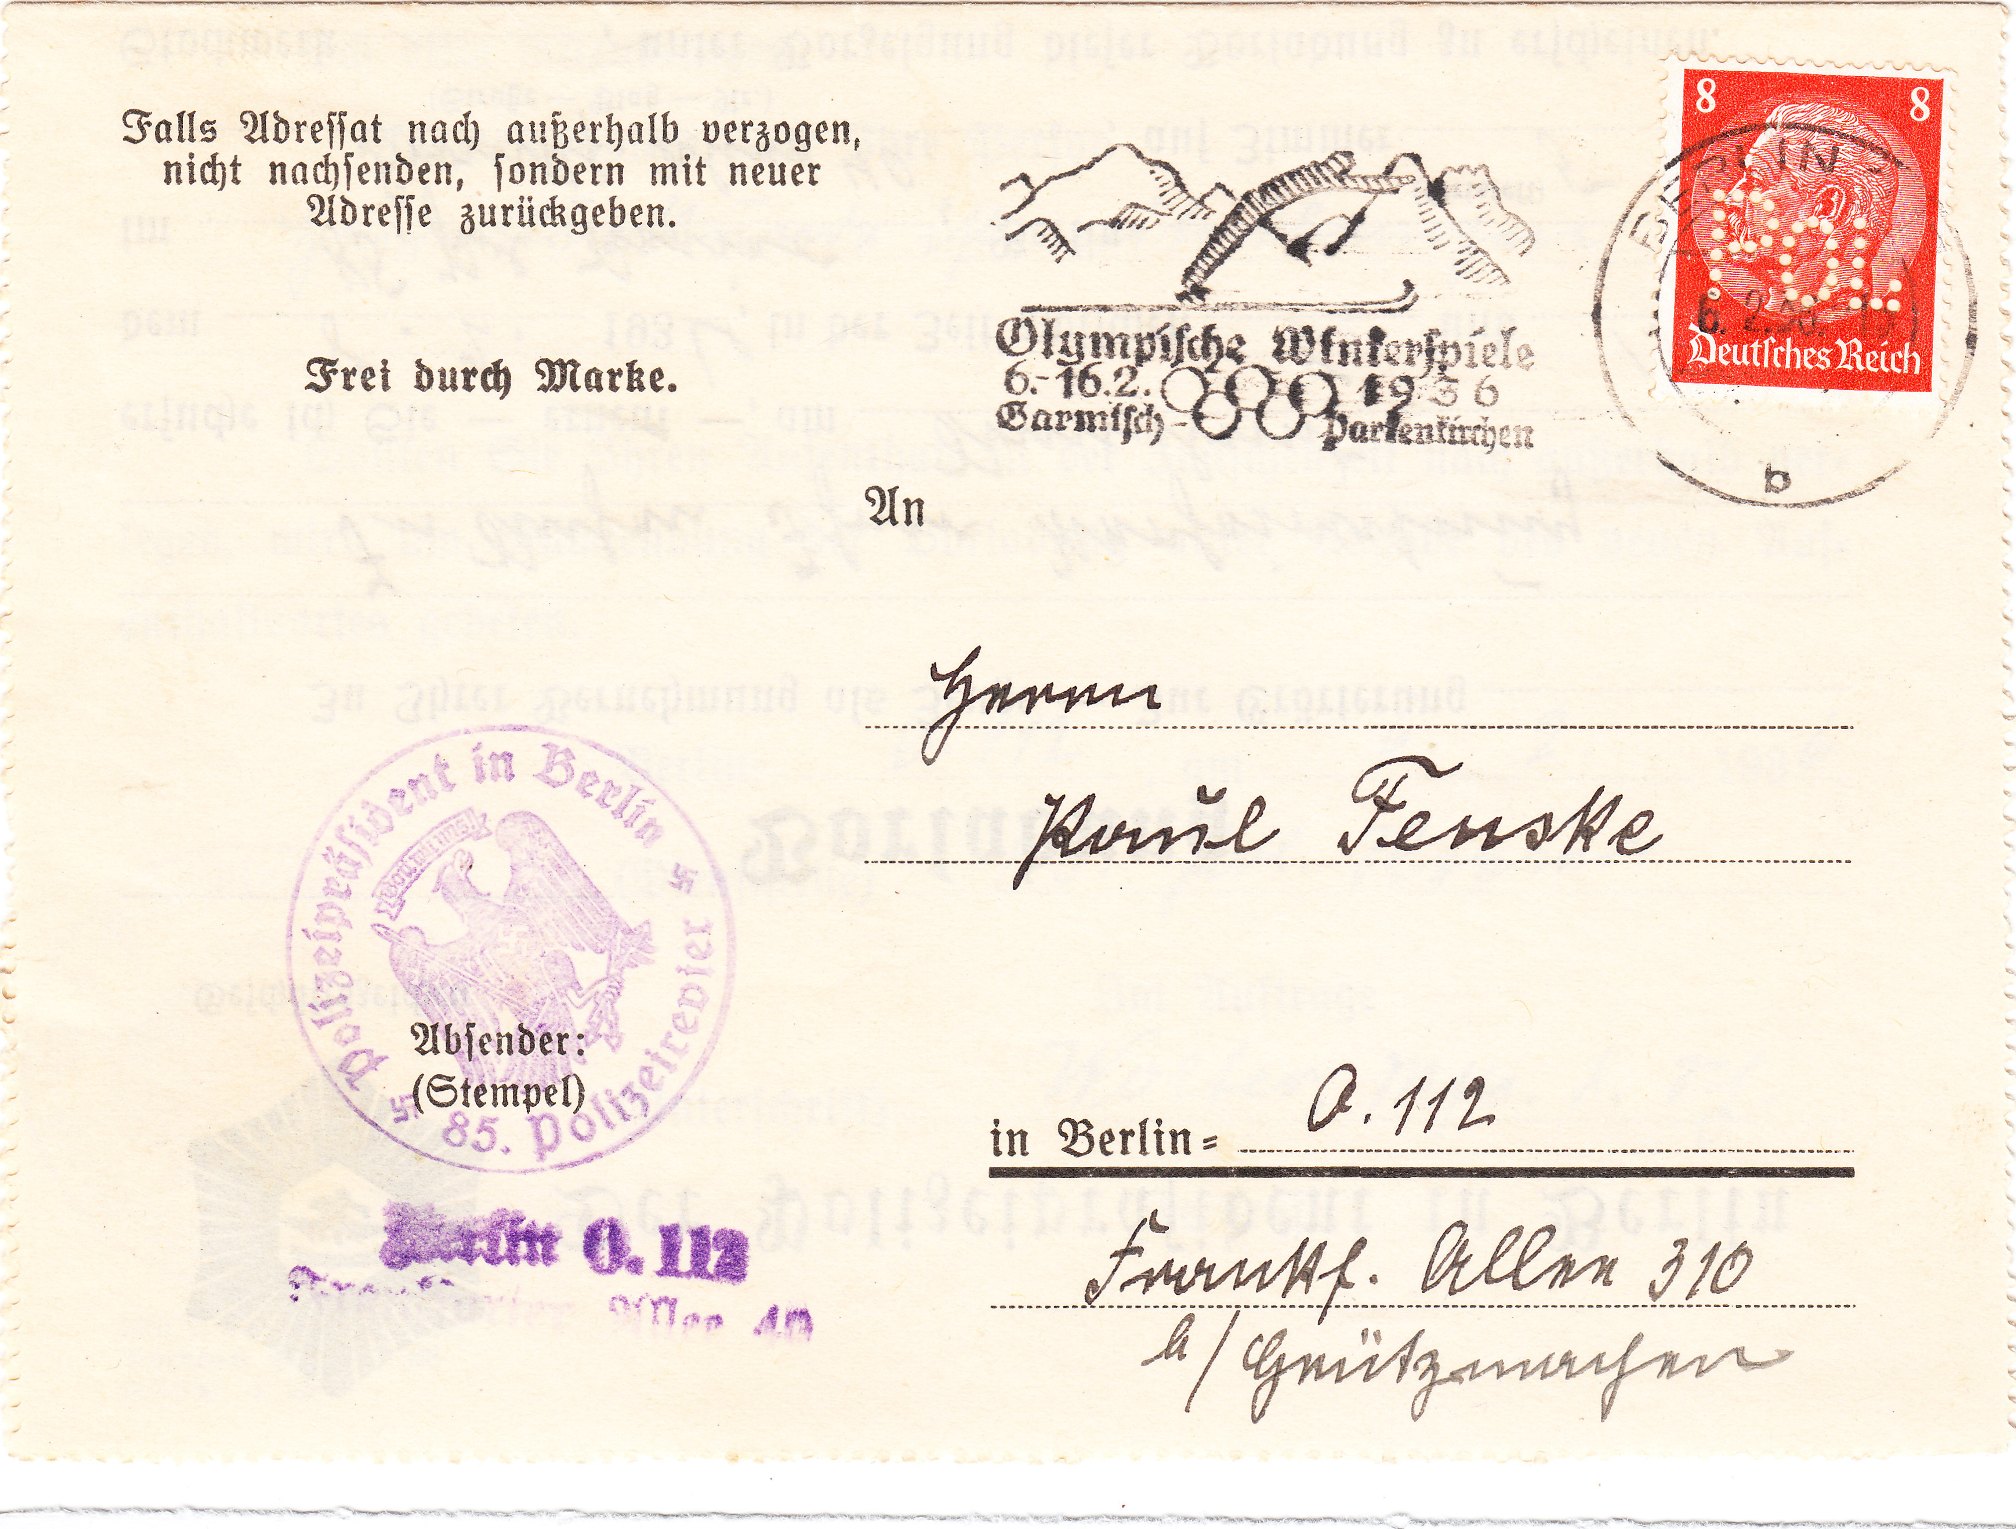 Falls Adressat nach außerhalb verzogen,
nicht nachsenden, sondern mit neuer
Adresse zurückgeben.
Frei durch Marke.
8 8
Deutsches Reich
Pol
BERLIN
6.2.36.
b
Olympische Winterspiele
6.-16.2. 1936
Garmisch-Partenkirchen
An
Herrn
Paul Fenske
in Berlin= O. 112
Frankf. Allee 310
b/ Grützmacher
Polizeipräsident in Berlin
85. Polizeirevier
Absender:
(Stempel)
Berlin O. 112
Allee 40